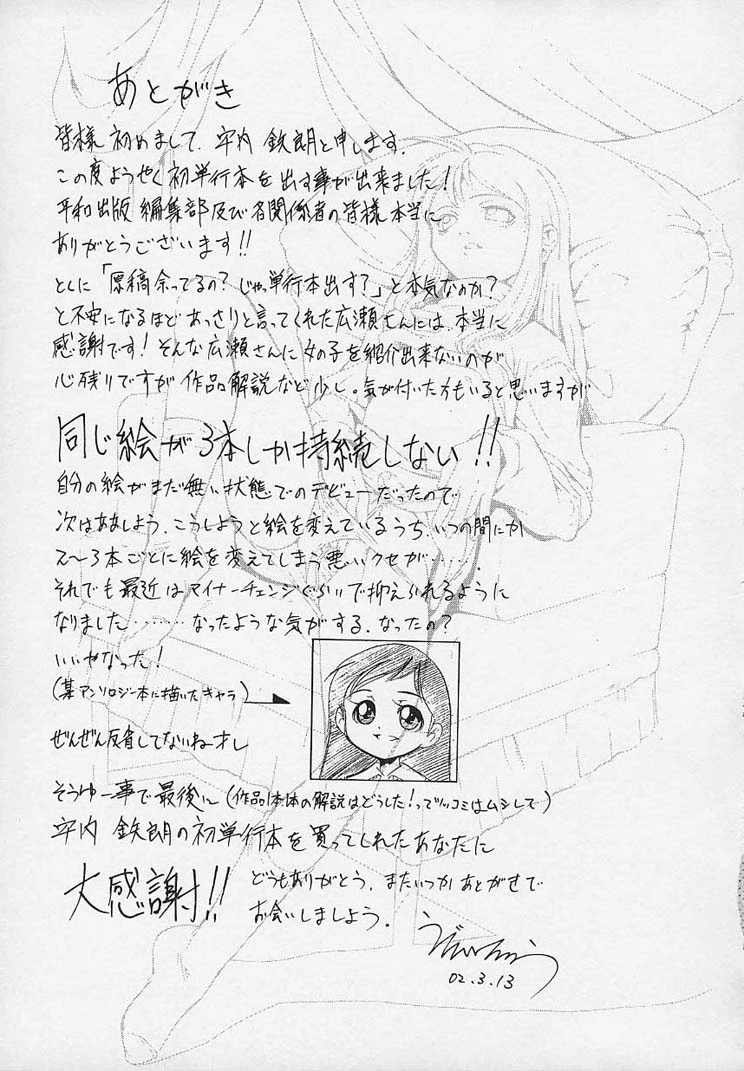 あとがき
皆様 初めまして、宇内 鉄朗と申します。
この度ようやく初単行本を出す事が出来ました!
平和出版 編集部及び各関係者の皆様本当に
ありがとうございます!!
とくに「原稿余ってるの? じゃ単行本出す?」と本気なのか?
と不安になるほどあっさりと言ってくれた広瀬さんには、本当に
感謝です! そんな広瀬さんに女の子を紹介出来ないのが
心残りですが 作品解説など少し。気が付いた方もいると思いますが
同じ絵が3本しか持続しない!!
自分の絵がまだ無い状態でのデビューだったので
次はああしよう、こうしようと絵を変えているうち、いつの間にか
2〜3本ごとに絵を変えてしまう悪いクセが……
それでも最近はマイナーチェンジぐらいで抑えられるように
なりました………なったような気がする、なったの?
いいやなった!
(某アンソロジー本に描いたキャラ)
ぜんぜん反省してないねオレ
そうゆー事で最後に(作品本体の解説はどうした!ってツッコミはムシして)
宇内 鉄朗の初単行本を買ってくれたあなたに
大感謝!!
どうもありがとう、またいつかあとがきで
お会いしましょう。
02.3.13